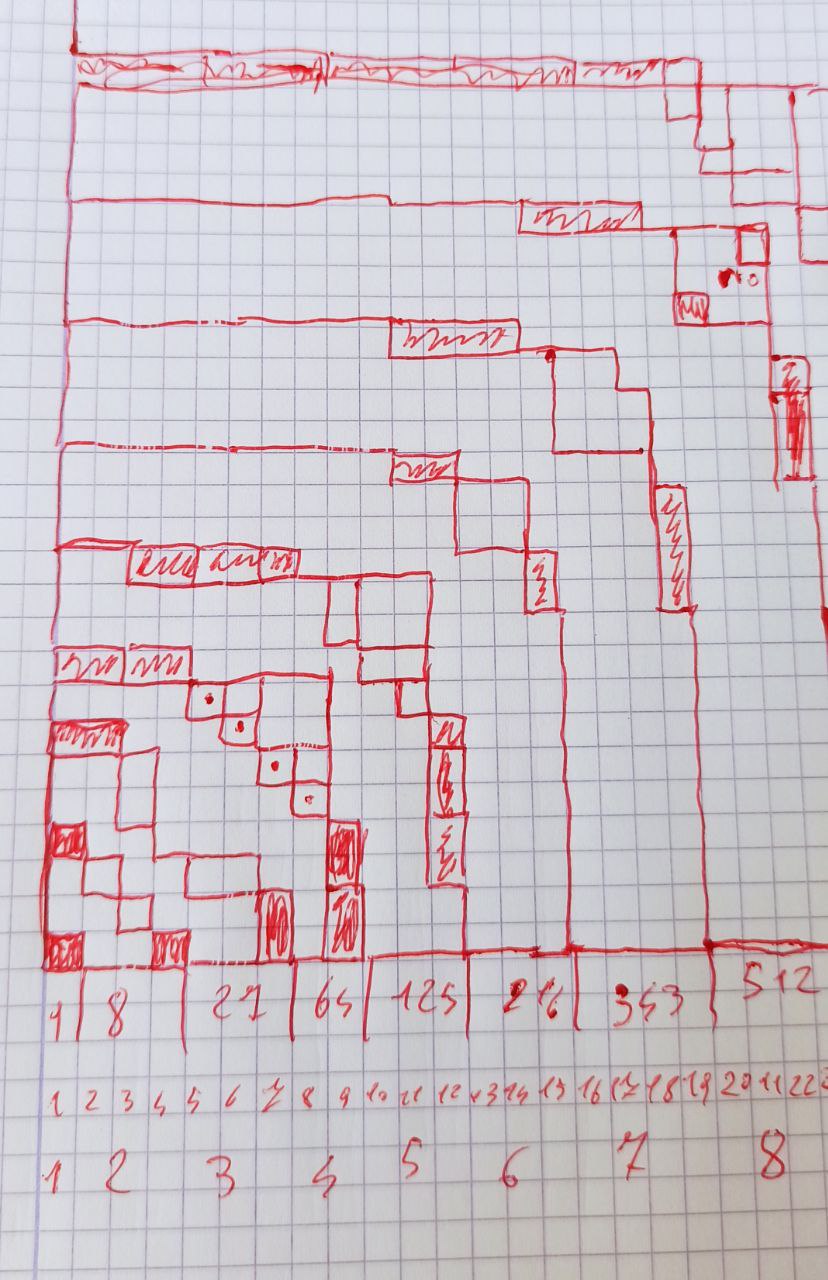 1 8 27 64 125 216 343 512
1 2 3 4 5 6 7 8 9 10 11 12 13 14 15 16 17 18 19 20 21 22
1 2 3 4 5 6 7 8